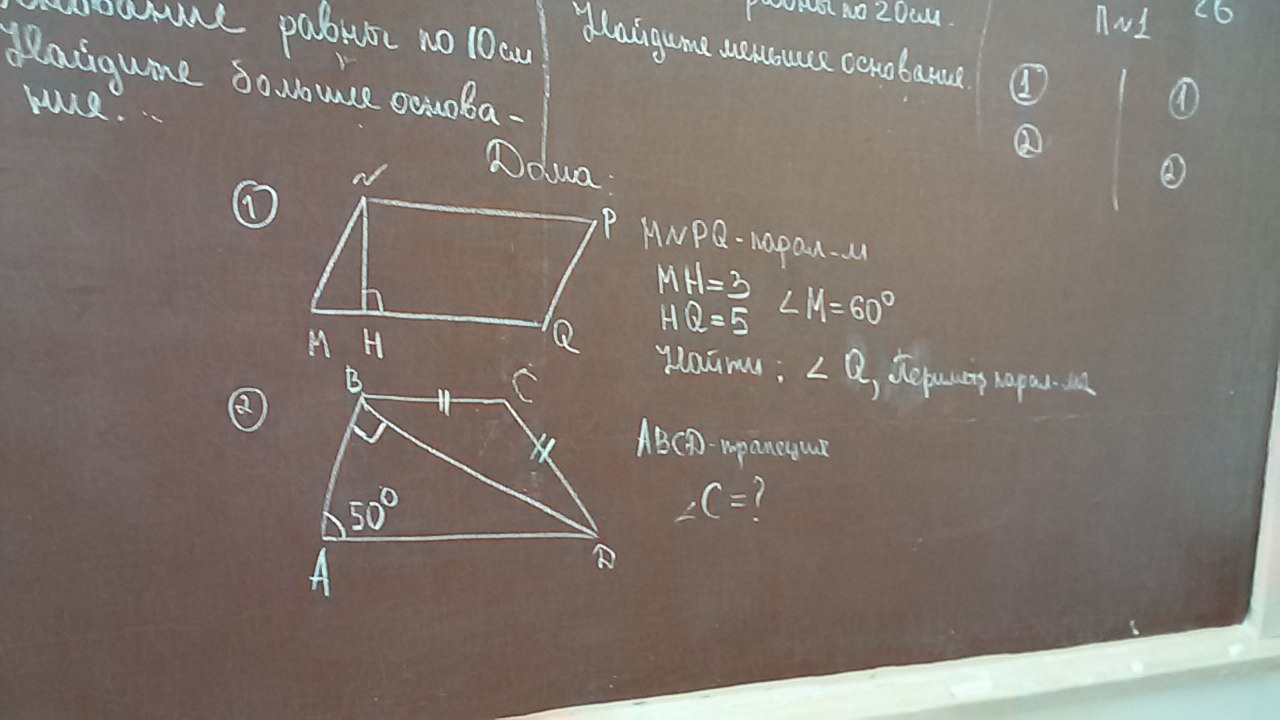 равны по 10 см
Найдите большее основа-
ние...
равны по 20 см.
Найдите меньшее основание.
П№1
26
1
2
1
2
Дома:
1
N
P
M
H
Q
MNPQ-парал-м
MH=3
HQ=5
∠M=60°
Найти: ∠Q, Периметр парал-ма
2
B
C
50°
A
D
ABCD-трапеция
∠C=?